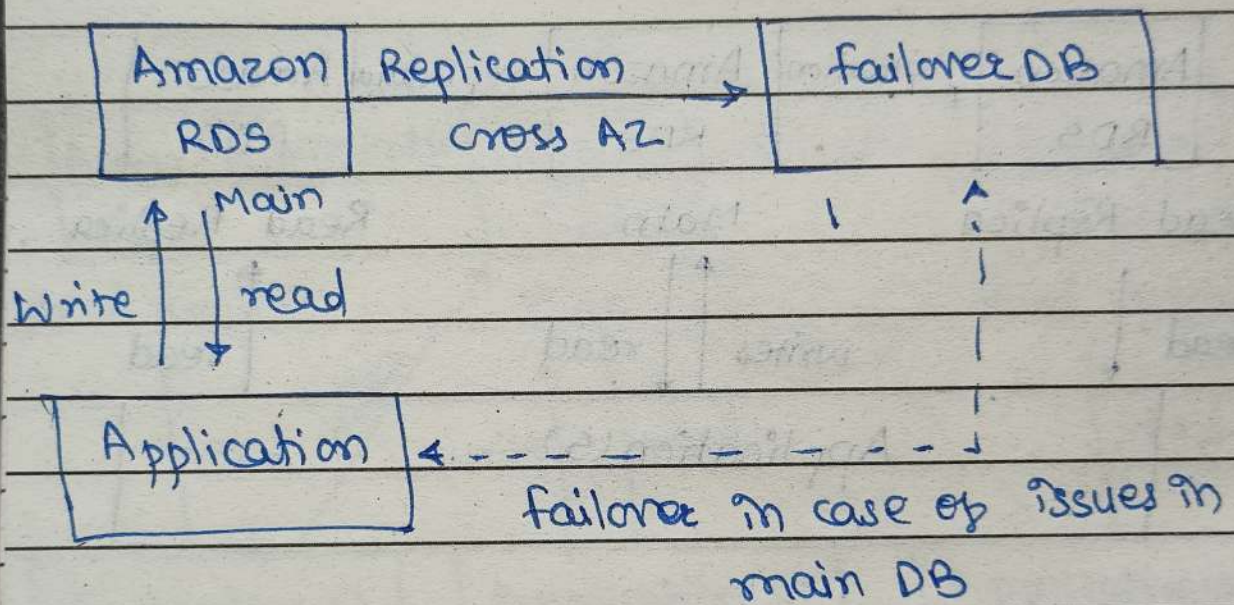 Amazon RDS
Replication cross AZ
failover DB
Main
Write
read
Application
failover in case of issues in
main DB